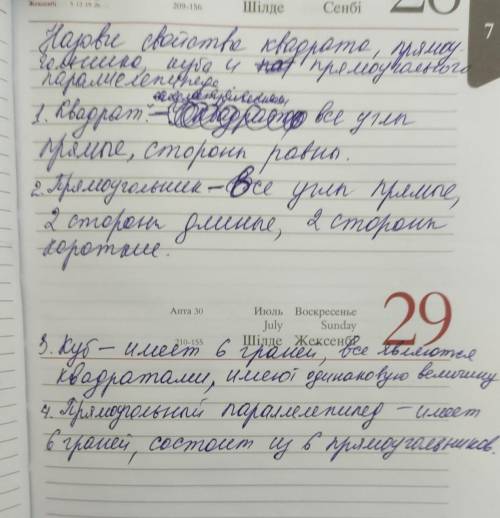 Жексенбі 5 12 19 26
209-156 Шілде Сенбі 28
7
Назовы свойства квадрата, прямоу
гольника, куба и прямоугольного
паралелепипеда
1. Квадрат: – все углы
прямые, стороны равны.
2. Прямоугольник – Все углы прямые,
2 стороны длиные, 2 стороны
короткие.
Апта 30 Июль Воскресенье 29
July Sunday
210-155 Шілде Жексенбі
3. Куб – имеет 6 граней, все являются
квадратами, имеют одинаковую величину
4. Прямоугольный параллелепипед – имеет
6 граней, состоит из 6 прямоугольников.